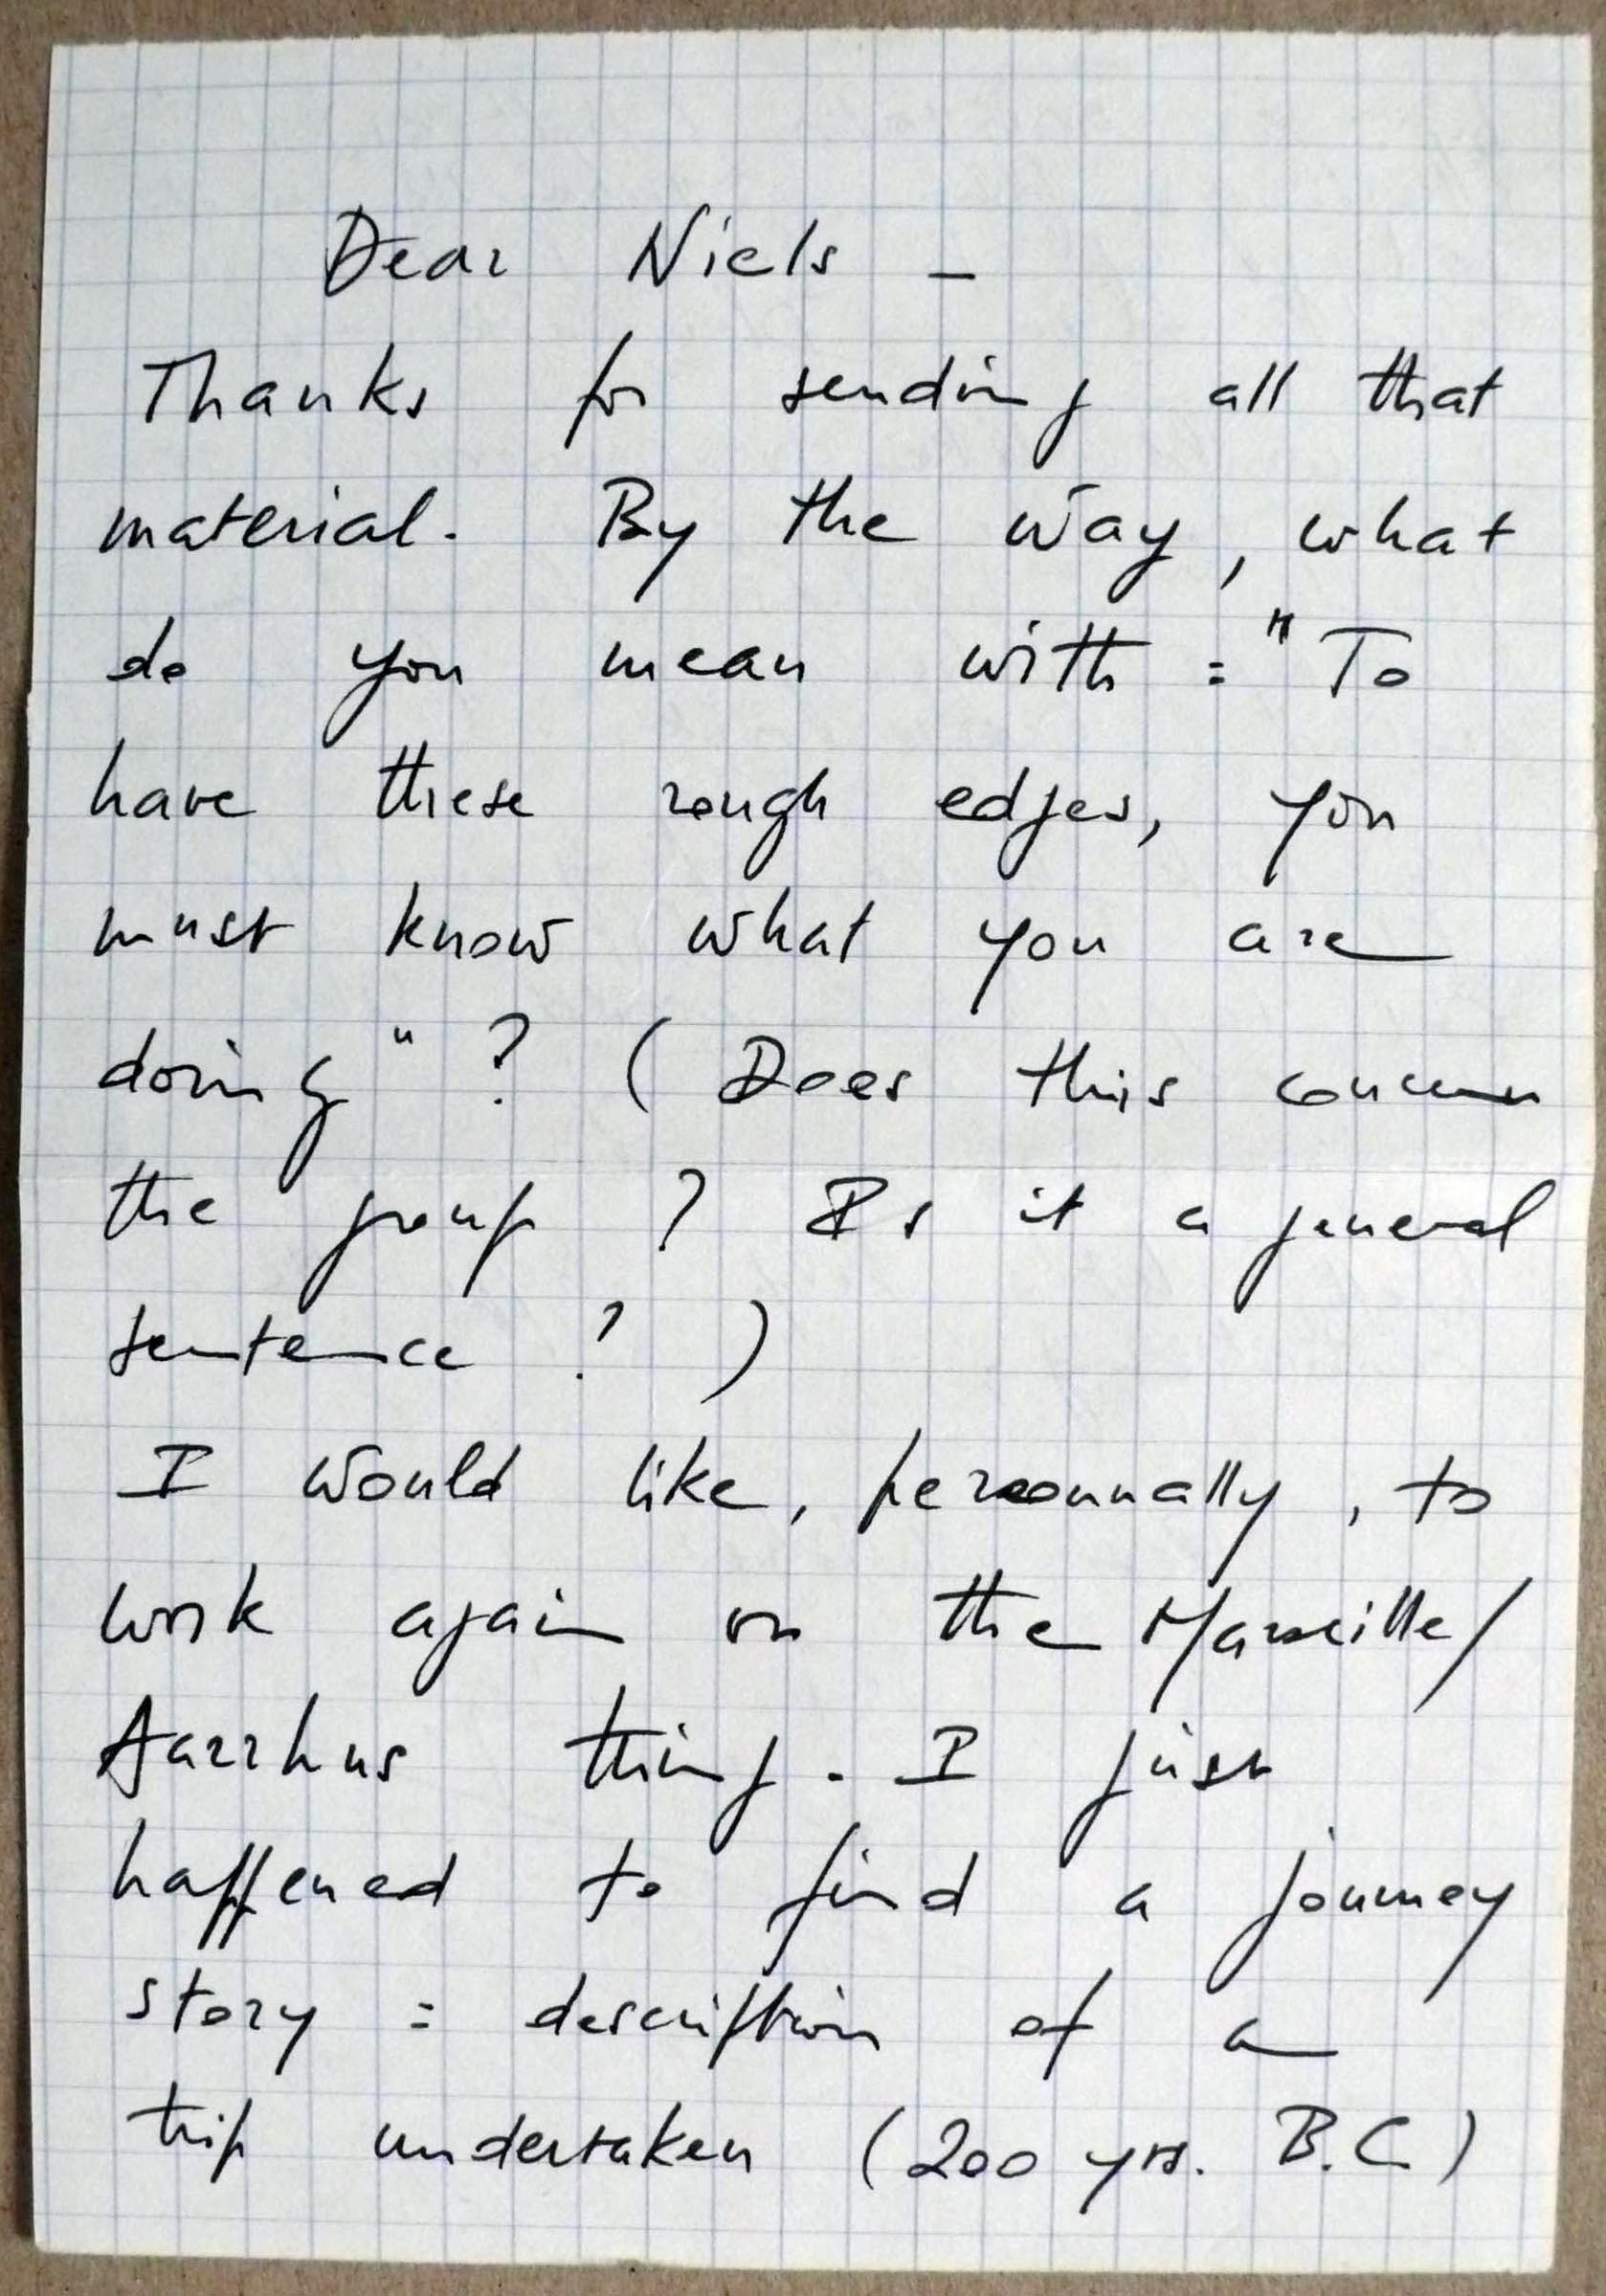 Dear Niels –
Thanks for sending all that
material. By the way, what
do you mean with : "To
have these rough edges, you
must know what you are
doing" ? ( Does this concern
the group ? Is it a general
sentence ? )
I would like, personnally, to
work again on the Marseille/
Aarrhus thing. I just
happened to find a journey
story : description of a
trip undertaken (200 yrs. B.C)